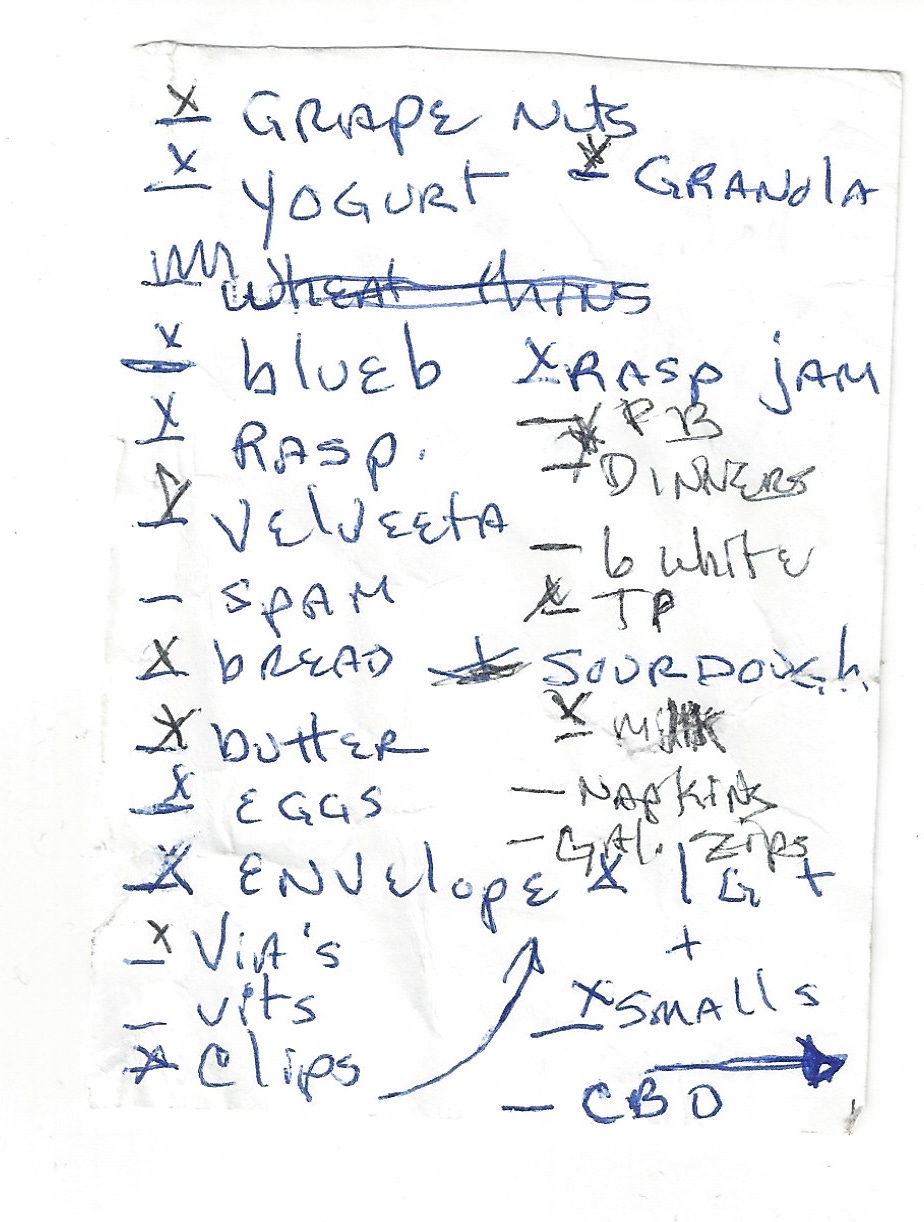 X GRAPE Nuts
X YOGURT X GRANOLA
WHEAT thINS
X bluEb X RASP jAM
X RASP. – X PB
– X DINNERS
X VElVEEtA
– b WhitE
– SPAM X TP
X bREAD SOURDOUGh
X buttER X Milk
X EGGS – NAPKiNs
– GAl. Zips
X ENVElopE X 1G +
X ViA's +
– vits X SMAllS
X Clips
– CBD